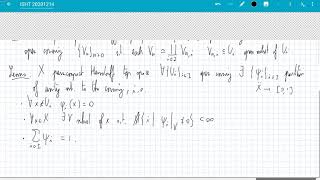 ISHT 20201214
open covering {V_n}_{n≥0} s.t. each V_n = ∐_{i∈I} V_{n,i} V_{n,i} open subset of U_i
Lemma: X paracompact Hausdorff top. space ∀{U_i}_{i∈I} open covering ∃ {φ_i}_{i∈I} partition
of unity rel. to the covering, i.e. X → [0,1]
· ∀x∉U_i φ_i(x) = 0
· ∀x∈X ∃ V nbhd of x s.t. #{i | φ_i|_V ≠ 0} < ∞
· ∑_{i∈I} φ_i = 1.